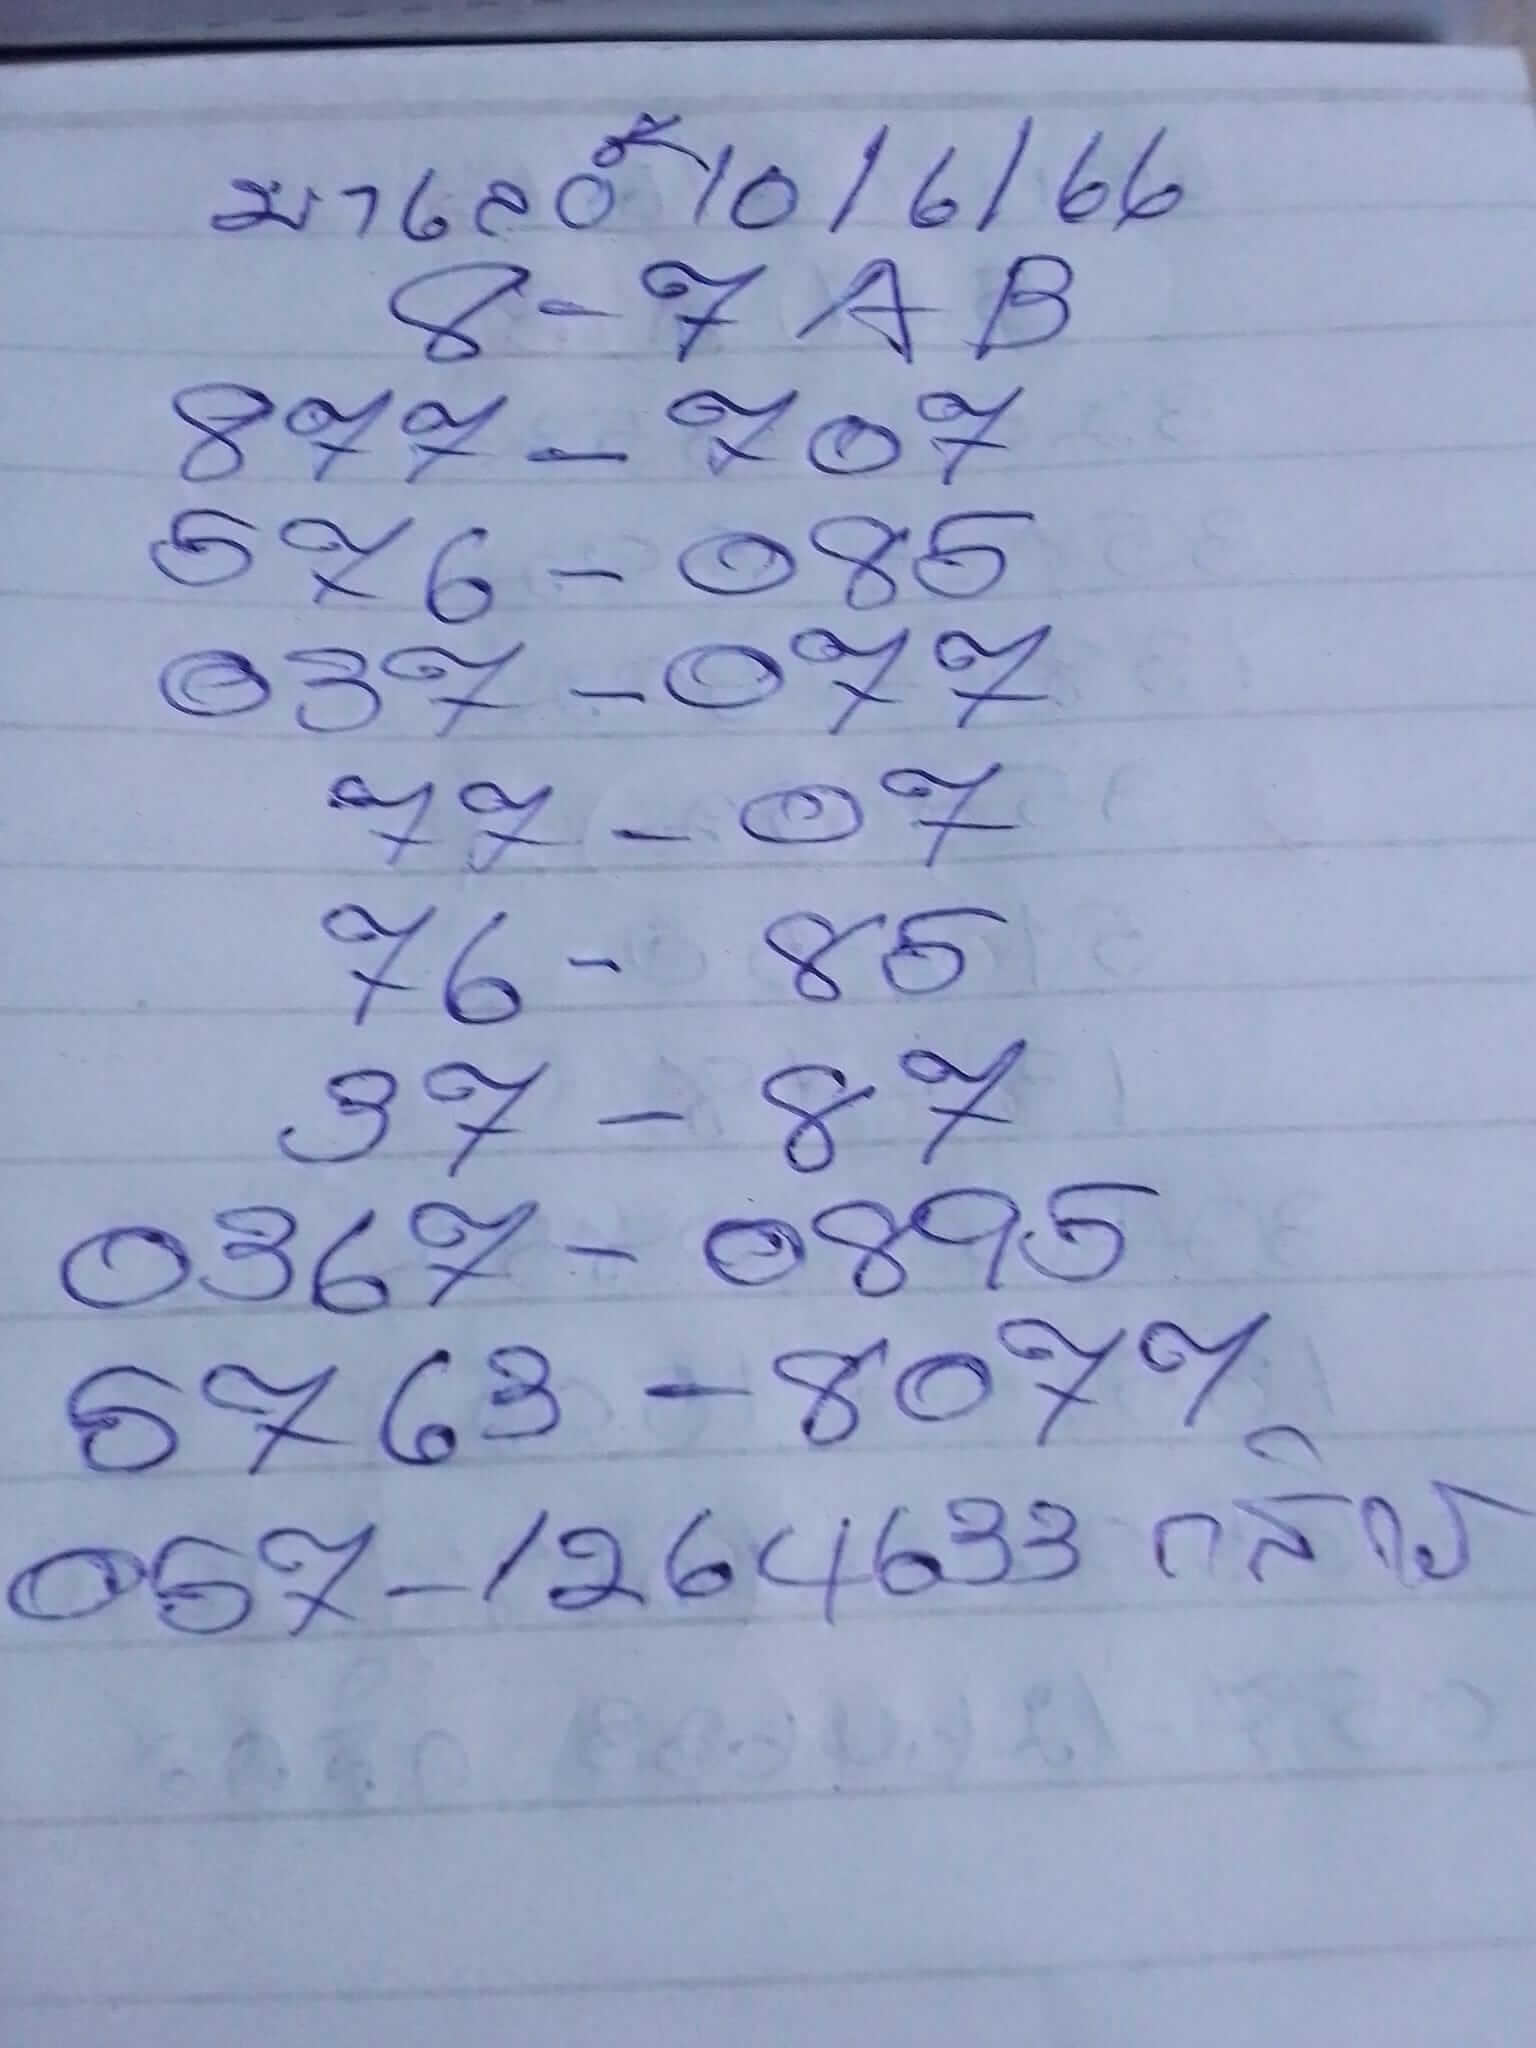 มาเลย์ 10/6/66
8-7 A B
877-707
576-085
037-077
77-07
76-85
37-87
0367-0895
5763-8077
057-1264633